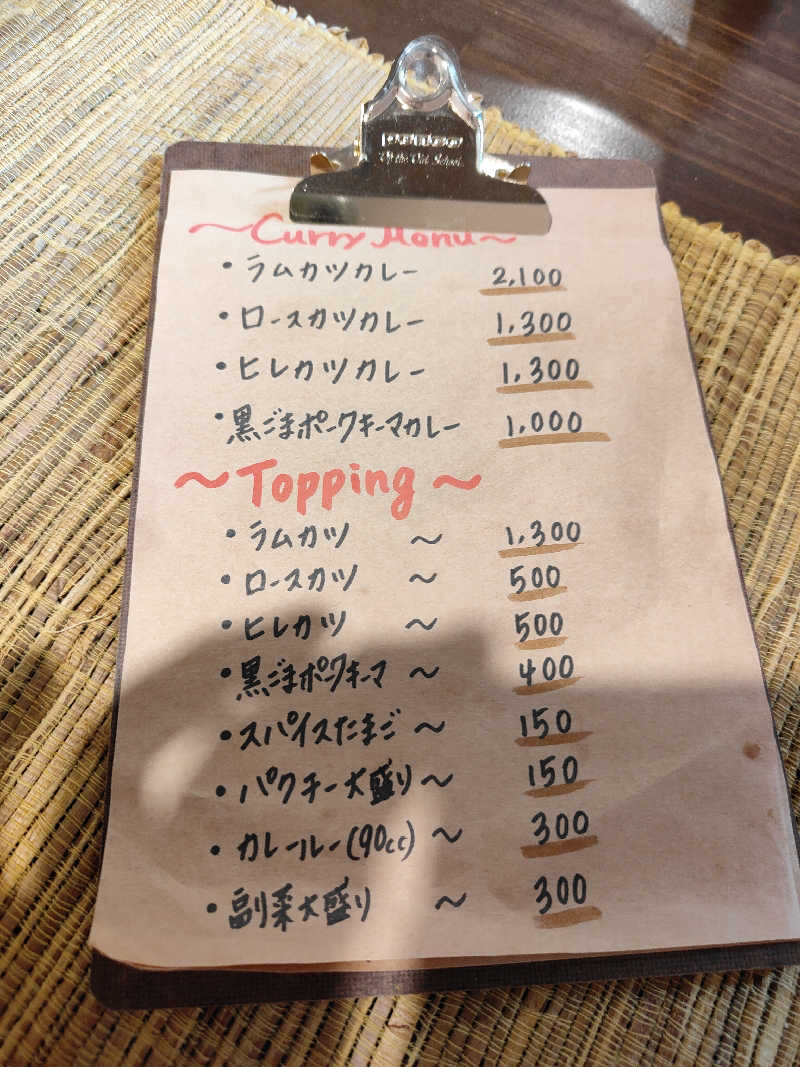 ~Curry Menu~
・ラムカツカレー 2,100
・ロースカツカレー 1,300
・ヒレカツカレー 1,300
・黒ごまポークキーマカレー 1,000
~Topping~
・ラムカツ ~ 1,300
・ロースカツ ~ 500
・ヒレカツ ~ 500
・黒ごまポークキーマ ~ 400
・スパイスたまご ~ 150
・パクチー大盛り ~ 150
・カレールー(90cc) ~ 300
・副菜大盛り ~ 300